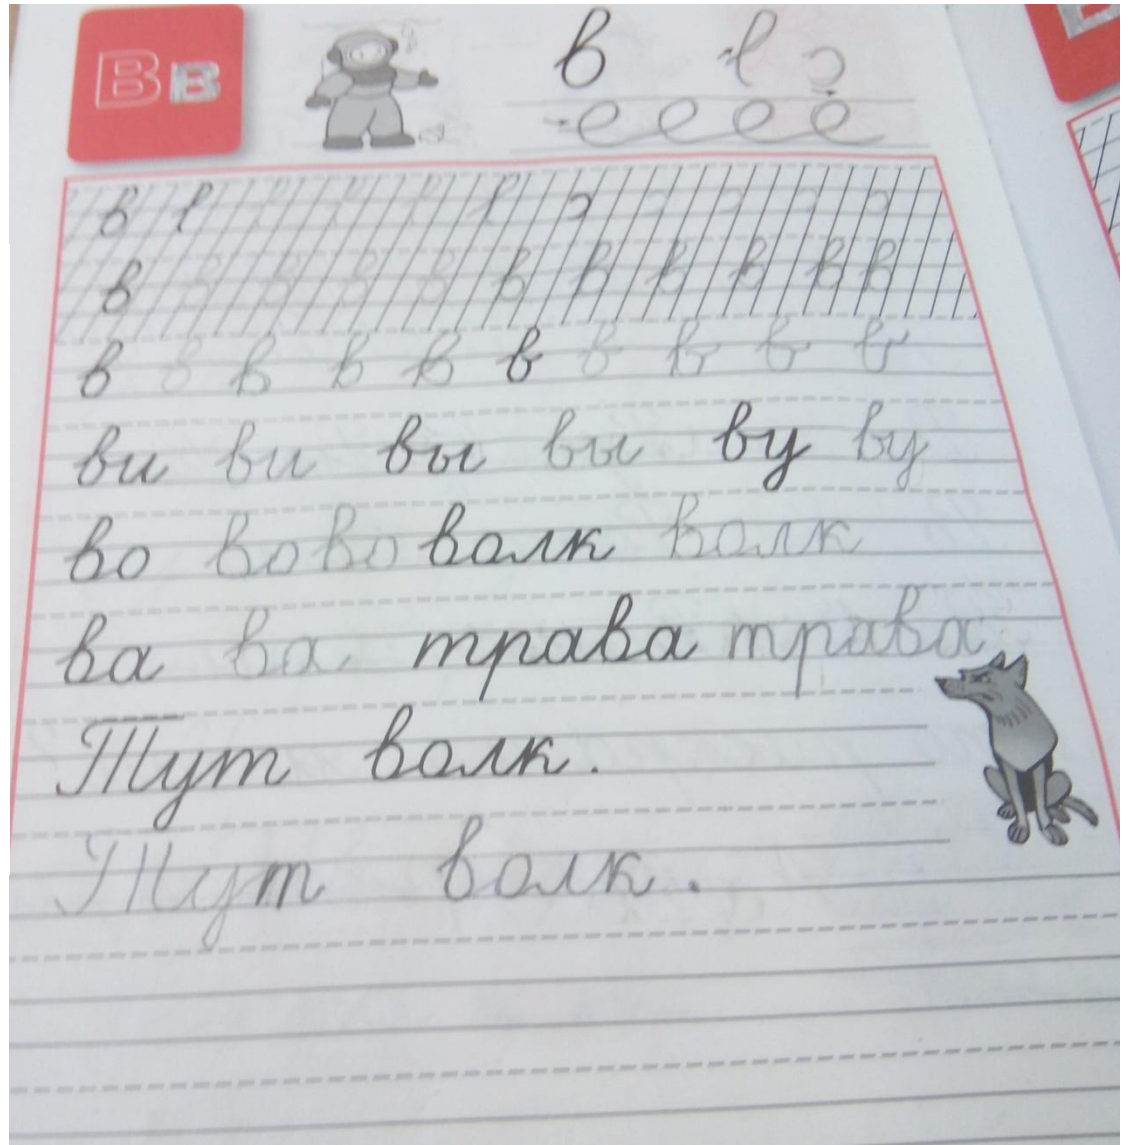 В в
в
е е е е
в
в в в в в в в в в в в
в в в в в в в в в в
ви ви вы вы ву ву
во во во волк волк
ва ва трава трава
Тут волк.
Тут волк.